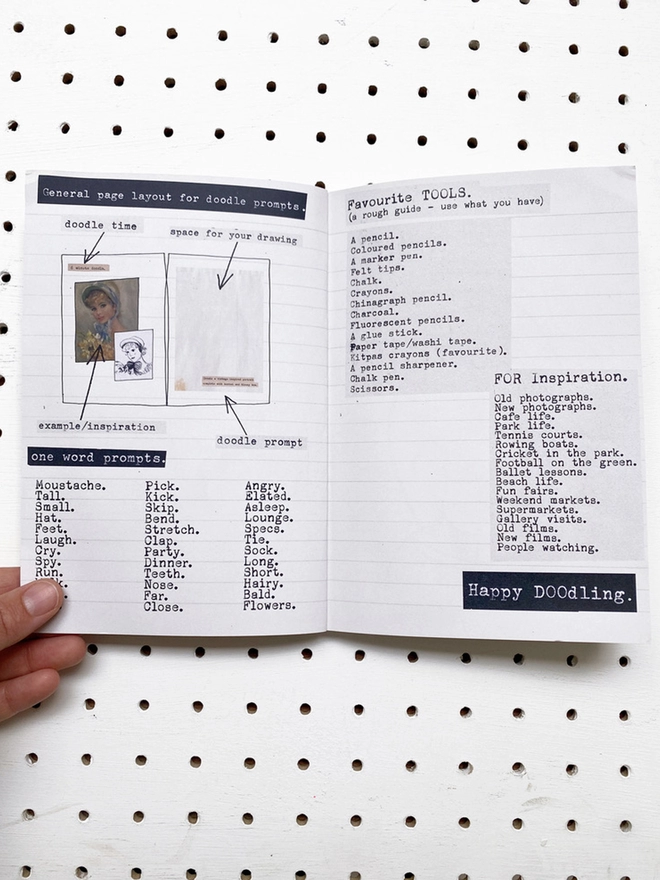 General page layout for doodle prompts.
doodle time
space for your drawing
example/inspiration
doodle prompt
one word prompts.
Moustache.
Tall.
Small.
Hat.
Feet.
Laugh.
Cry.
Spy.
Run.
Pick.
Kick.
Skip.
Bend.
Stretch.
Clap.
Party.
Dinner.
Teeth.
Nose.
Far.
Close.
Angry.
Elated.
Asleep.
Lounge.
Specs.
Tie.
Sock.
Long.
Short.
Hairy.
Bald.
Flowers.
Favourite TOOLS.
(a rough guide - use what you have)
A pencil.
Coloured pencils.
A marker pen.
Felt tips.
Chalk.
Crayons.
Chinagraph pencil.
Charcoal.
Fluorescent pencils.
A glue stick.
Paper tape/washi tape.
Kitpas crayons (favourite).
A pencil sharpener.
Chalk pen.
Scissors.
FOR Inspiration.
Old photographs.
New photographs.
Cafe life.
Park life.
Tennis courts.
Rowing boats.
Cricket in the park.
Football on the green.
Ballet lessons.
Beach life.
Fun fairs.
Weekend markets.
Supermarkets.
Gallery visits.
Old films.
New films.
People watching.
Happy DOOdling.